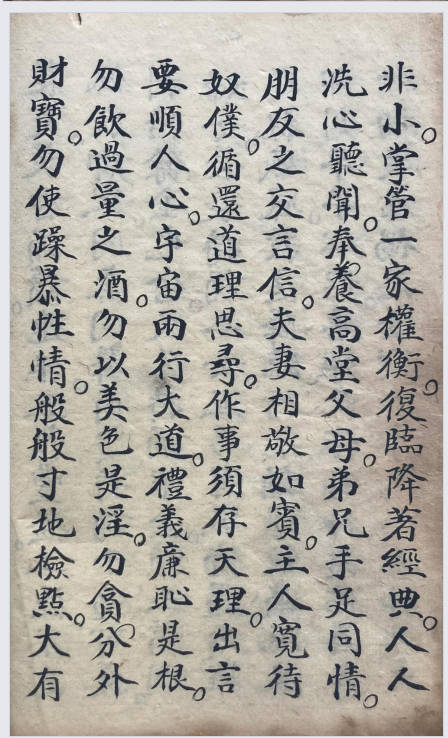 非小。掌管一家權衡。復臨降著經典。人人
洗心聽聞。奉養高堂父母。弟兄手足同情。
朋友之交言信。夫妻相敬如賓。主人寬待
奴僕。循還道理思尋。作事須存天理。出言
要順人心。宇宙兩行大道。禮義廉恥是根。
勿飲過量之酒。勿以美色是淫。勿貪分外
財寶。勿使躁暴性情。般般寸地檢點。大有